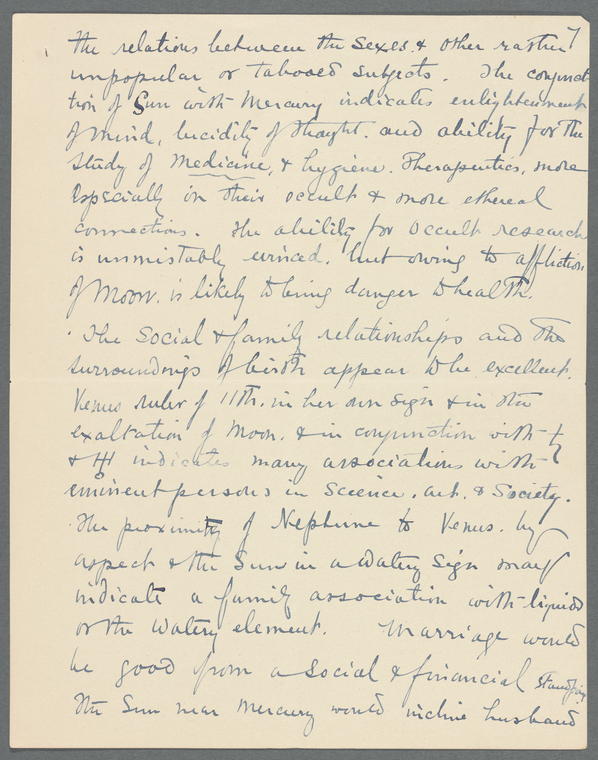 7
the relations between the sexes & other rather
unpopular or tabooed subjects. The conjunc-
tion of Sun with Mercury indicates enlightenment
of mind, lucidity of thought. and ability for the
study of Medicine, & hygiene. Therapeutics, more
especially in their occult & more ethereal
connections. The ability for occult research
is unmistably evinced. but owing to affliction
of Moon. is likely to bring danger to health.
The Social & family relationships and the
surroundings of birth appear to be excellent.
Venus ruler of 11th. in her own sign & in the
exaltation of Moon. & in conjunction with ♄
& ♅ indicates many associations with
eminent persons in Science. art. & Society.
The proximity of Neptune to Venus. by
aspect & the Sun in a watery sign may
indicate a family association with liquids
or the watery element. Marriage would
be good from a social & financial standpoint
The Sun near Mercury would incline husband